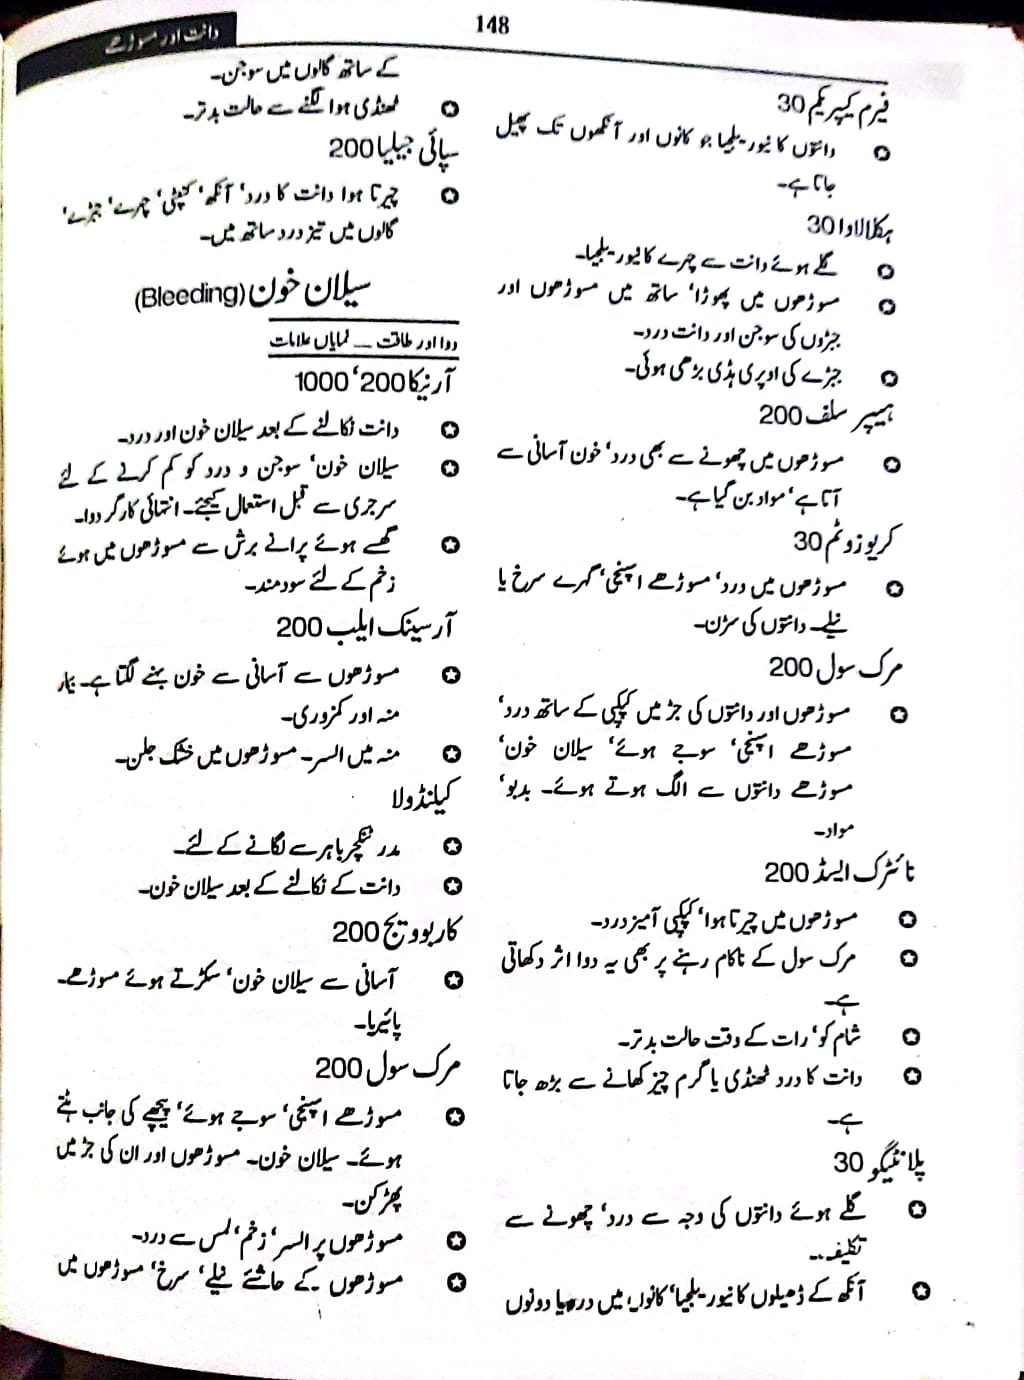 148
دانت اور مسوڑھے
فیرم پیکریکم 30
دانتوں کا نیوریلجیا جو کانوں اور آنکھوں تک پھیل
جاتا ہے۔
ہکلالاوا 30
گلے ہوئے دانت سے چہرے کا نیوریلجیا۔
مسوڑھوں میں پھوڑا‘ ساتھ میں مسوڑھوں اور
جبڑوں کی سوجن اور دانت درد۔
جبڑے کی اوپری ہڈی بڑھی ہوئی۔
ہیپر سلف 200
مسوڑھوں میں چھونے سے بھی درد‘ خون آسانی سے
آتا ہے‘ مواد بن گیا ہے۔
کریوزوٹم 30
مسوڑھوں میں درد‘ مسوڑھے اسپنجی‘ گہرے سرخ یا
نیلے۔ دانتوں کی سڑن۔
مرک سول 200
مسوڑھوں اور دانتوں کی جڑ میں کپکپی کے ساتھ درد‘
مسوڑھے اسپنجی‘ سوجے ہوئے‘ سیلان خون‘
مسوڑھے دانتوں سے الگ ہوتے ہوئے۔ بدبو‘
مواد۔
نائٹرک ایسڈ 200
مسوڑھوں میں چیرتا ہوا‘ کپکپی آمیز درد۔
مرک سول کے ناکام رہنے پر بھی یہ دوا اثر دکھاتی
ہے۔
شام کو‘ رات کے وقت حالت بدتر۔
دانت کا درد ٹھنڈی یا گرم چیز کھانے سے بڑھ جاتا
ہے۔
پلانٹیگو 30
گلے ہوئے دانتوں کی وجہ سے درد‘ چھونے سے
تکلیف۔
آنکھ کے ڈھیلوں کا نیوریلجیا‘ کانوں میں درد یا دونوں
کے ساتھ گالوں میں سوجن۔
ٹھنڈی ہوا لگنے سے حالت بدتر۔
سپائی جیلیا 200
چیرتا ہوا دانت کا درد‘ آنکھ‘ کنپٹی‘ چہرے‘ جبڑے‘
گالوں میں تیز درد ساتھ میں۔
سیلان خون (Bleeding)
دوا اور طاقت ــ نمایاں علامات
آرنیکا 200‘ 1000
دانت نکالنے کے بعد سیلان خون اور درد۔
سیلان خون‘ سوجن و درد کو کم کرنے کے لئے
سرجری سے قبل استعمال کیجئے۔ انتہائی کارگر دوا۔
گھسے ہوئے پرانے برش سے مسوڑھوں میں ہوئے
زخم کے لئے سودمند۔
آرسینک ایلب 200
مسوڑھوں سے آسانی سے خون بہنے لگتا ہے۔ بیمار
منہ اور کمزوری۔
منہ میں السر۔ مسوڑھوں میں خشک جلن۔
کیلنڈولا
مدر ٹنکچر باہر سے لگانے کے لئے۔
دانت کے نکالنے کے بعد سیلان خون۔
کاربوویج 200
آسانی سے سیلان خون‘ سکڑتے ہوئے مسوڑھے۔
پائیریا۔
مرک سول 200
مسوڑھے اسپنجی‘ سوجے ہوئے‘ پیچھے کی جانب ہٹے
ہوئے۔ سیلان خون۔ مسوڑھوں اور ان کی جڑ میں
پھڑکن۔
مسوڑھوں پر السر‘ زخم‘ لمس سے درد۔
مسوڑھوں کے حاشئے نیلے‘ سرخ‘ مسوڑھوں میں